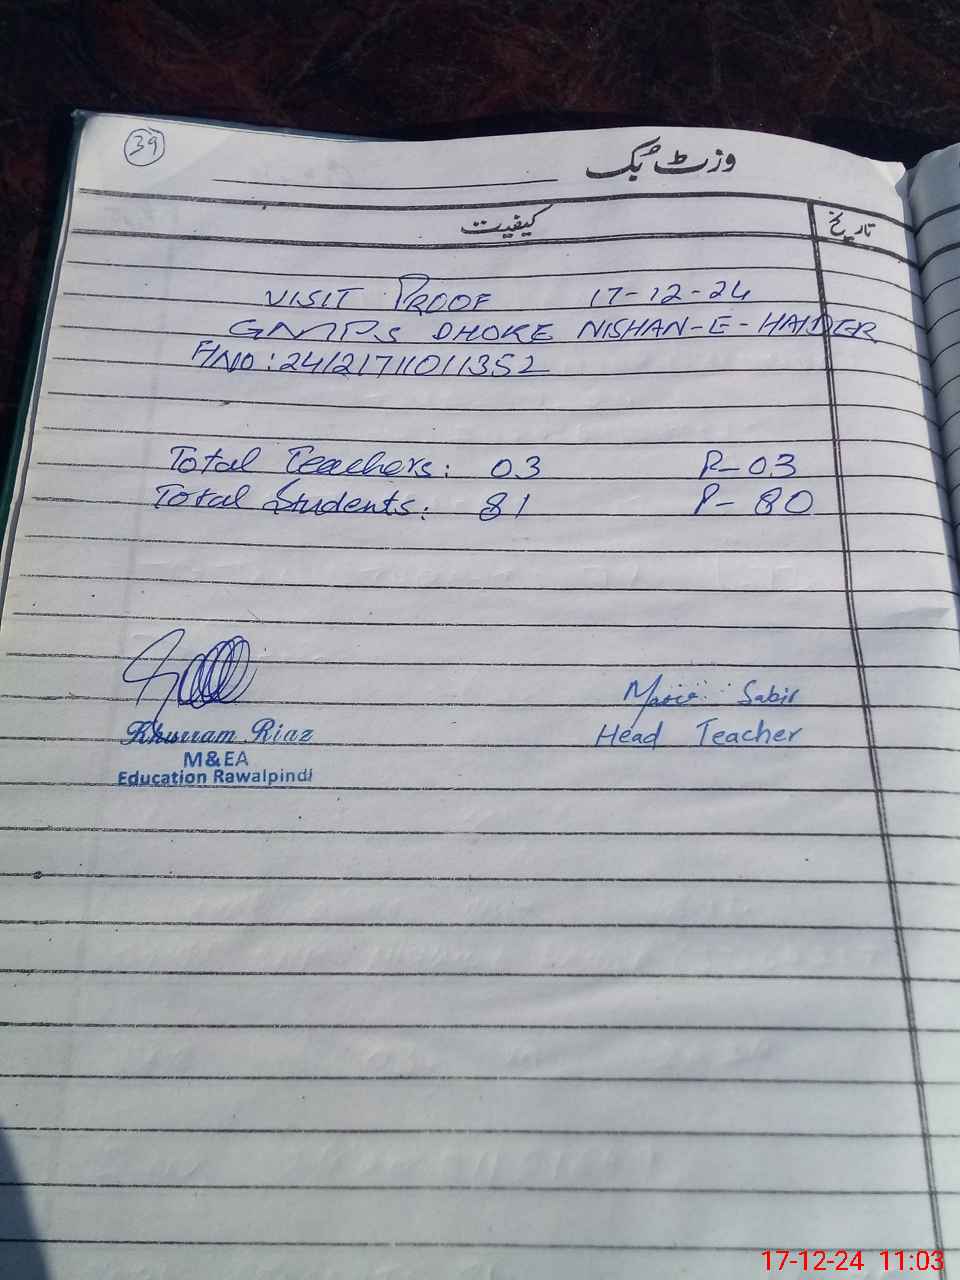 39
وزٹ بک
کیفیت تاریخ
VISIT PROOF 17-12-24
GMPS DHOKE NISHAN-E-HAIDER
F/NO: 24121711011352
Total Teachers: 03 P-03
Total Students: 81 P-80
Sabir
Head Teacher
Khurram Riaz
M&EA
Education Rawalpindi
17-12-24 11:03